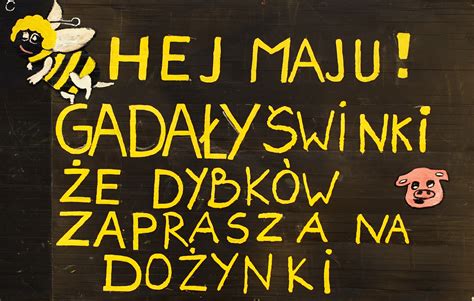 HEJ MAJU!
GADAŁY ŚWINKI
ŻE DYBKÓW
ZAPRASZA NA
DOŻYNKI